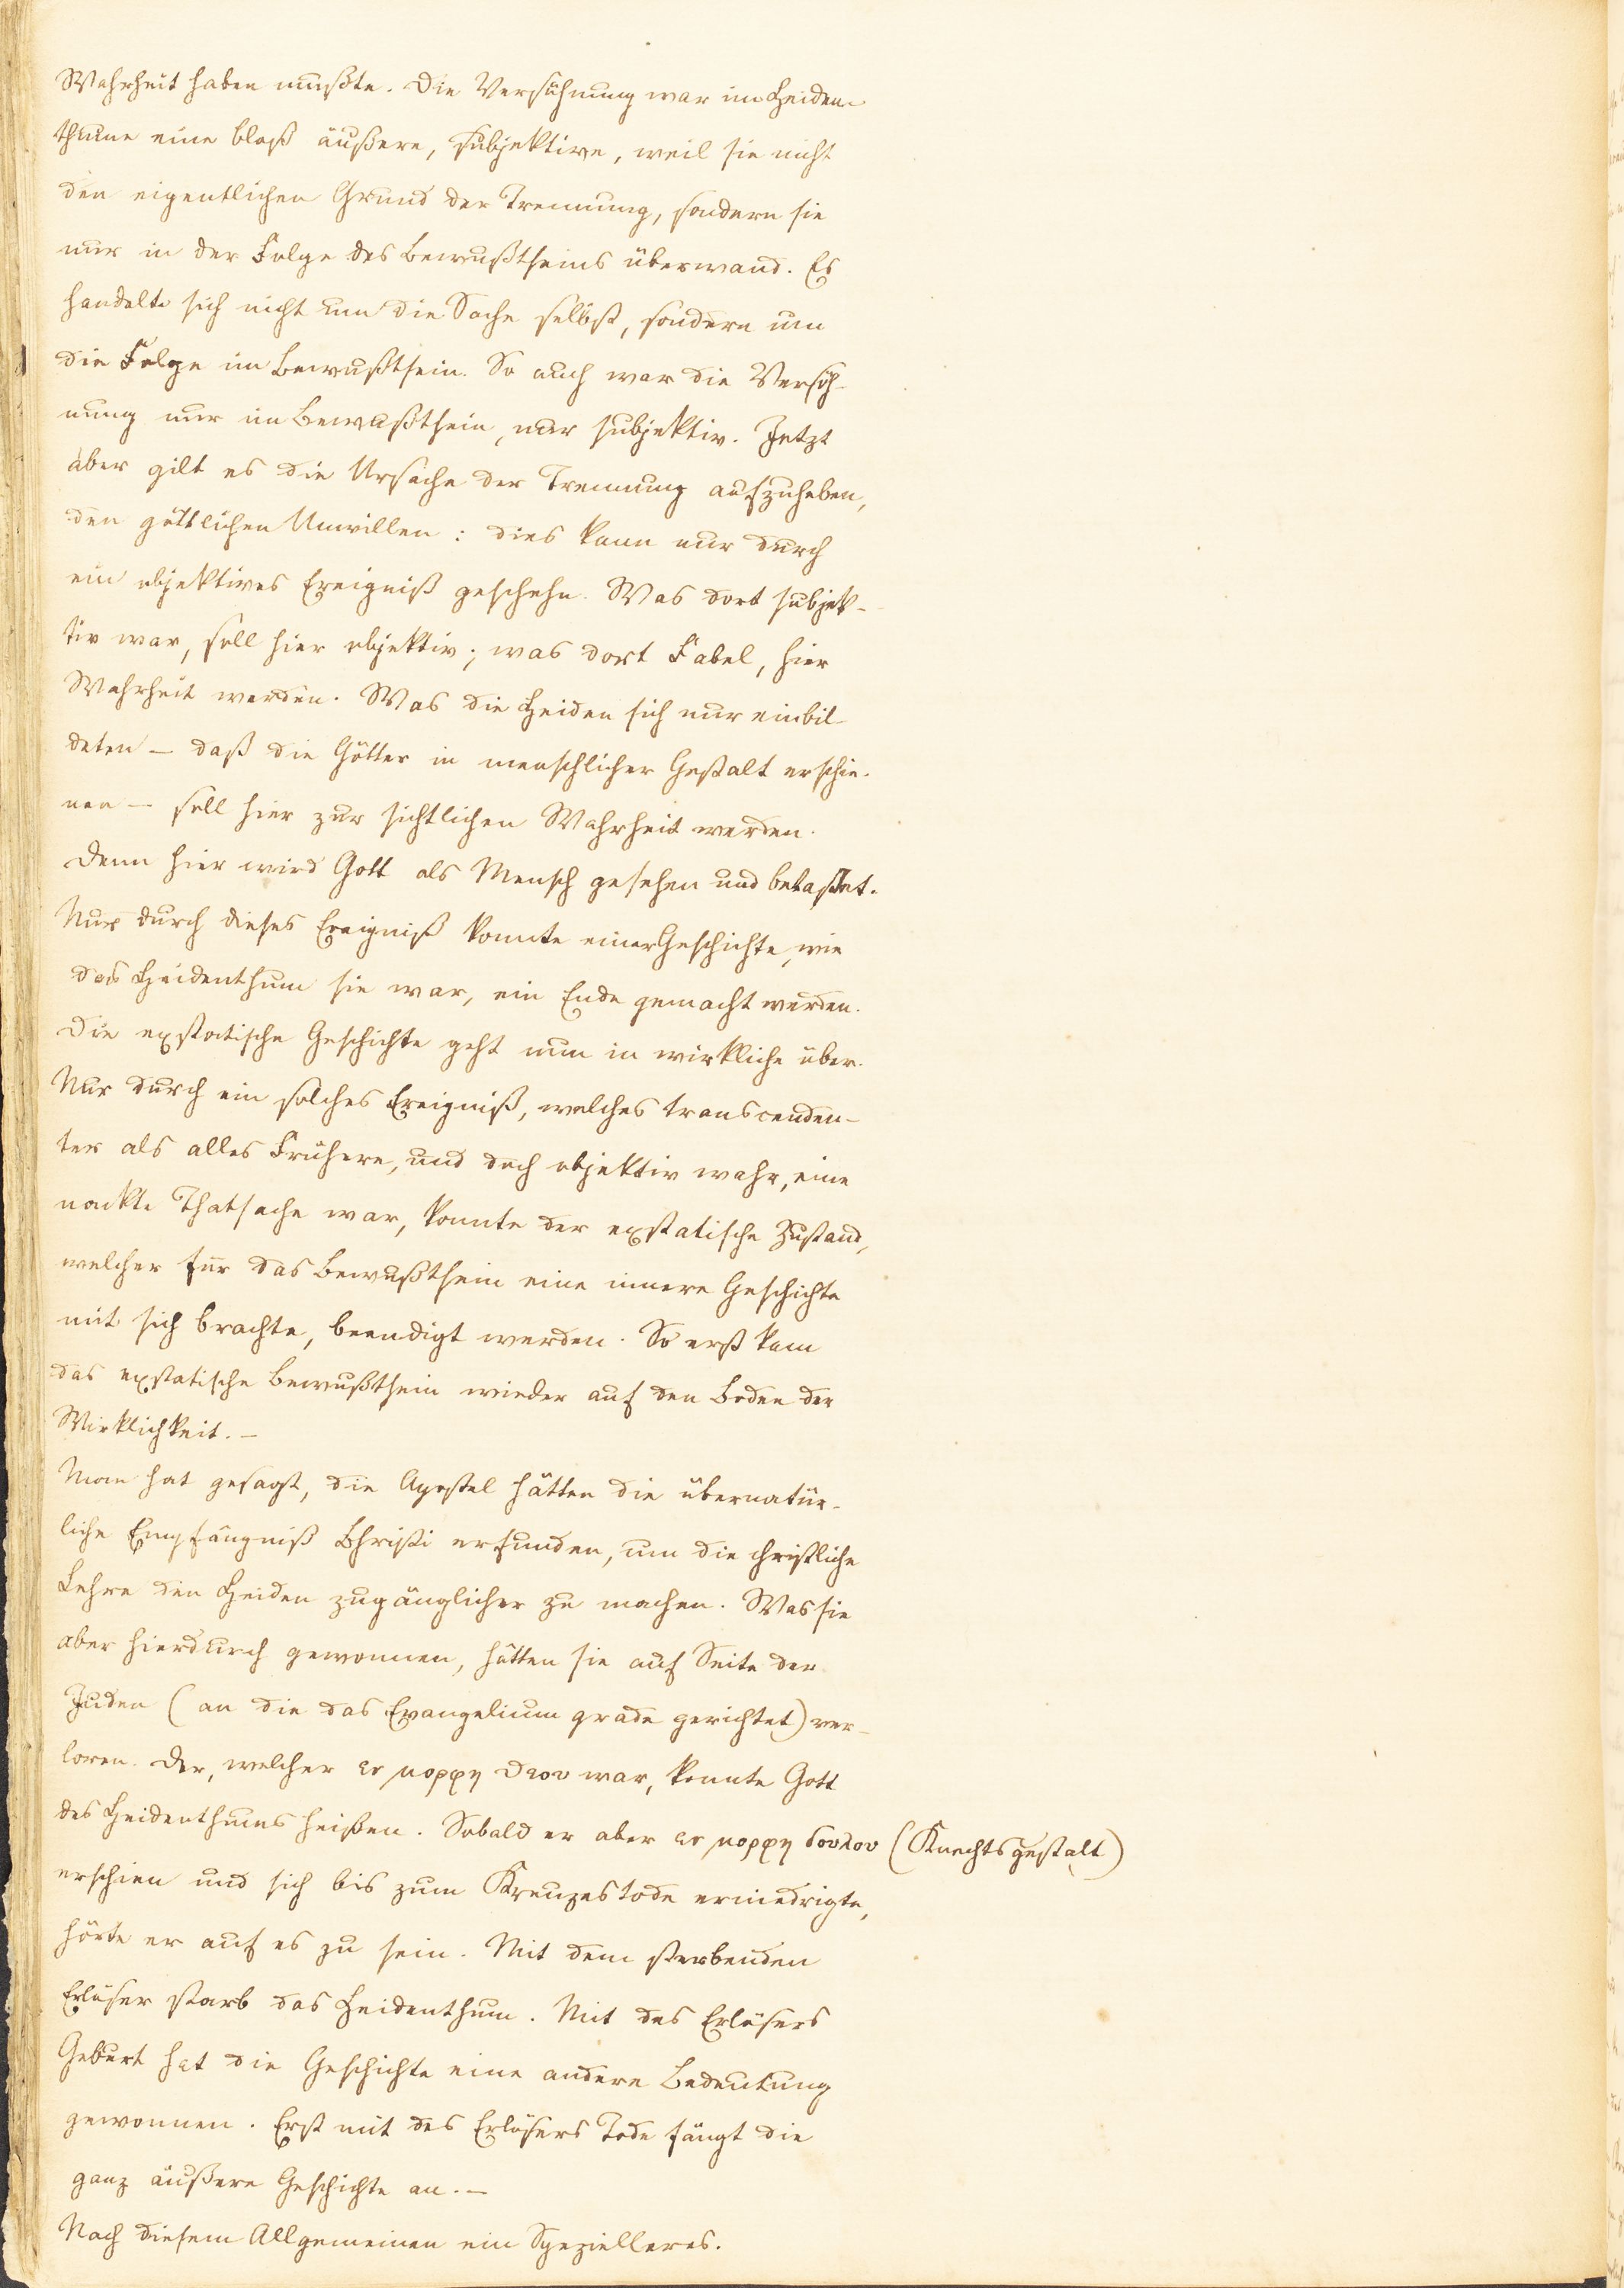 Wahrheit haben mußte. Die Versöhnung war im Heiden-
thume eine bloß äußere, subjektive, weil sie nicht
den eigentlichen Grund der Trennung, sondern sie
nur in der Folge des Bewußtseins überwand. Es
handelte sich nicht um die Sache selbst, sondern um
die Folge im Bewußtsein. So auch war die Versöh-
nung nur im Bewußtsein, nur subjektiv. Jetzt
aber gilt es die Ursache der Trennung aufzuheben,
den göttlichen Unwillen: dies kann nur durch
ein objektives Ereigniß geschehn. Was dort subjek-
tiv war, soll hier objektiv; was dort Fabel, hier
Wahrheit werden. Was die Heiden sich nur einbil-
deten – daß die Götter in menschlicher Gestalt erschie-
nen – soll hier zur sichtlichen Wahrheit werden.
Denn hier wird Gott als Mensch gesehen und betastet.
Nur durch dieses Ereigniß konnte einer Geschichte, wie
das Heidenthum sie war, ein Ende gemacht werden.
Die exstatische Geschichte geht nun in wirkliche über.
Nur durch ein solches Ereigniß, welches transcenden-
ter als alles Frühere, und doch objektiv wahr, eine
nackte Thatsache war, konnte der exstatische Zustand,
welcher für das Bewußtsein eine innere Geschichte
mit sich brachte, beendigt werden. So erst kam
das exstatische Bewußtsein wieder auf den Boden der
Wirklichkeit. –
Man hat gesagt, die Apostel hätten die übernatür-
liche Empfängniß Christi erfunden, um die christliche
Lehre den Heiden zugänglicher zu machen. Was sie
aber hierdurch gewonnen, hätten sie auf Seite der
Juden (an die das Evangelium grade gerichtet) ver-
loren. Der, welcher εν μορφη θεου war, konnte Gott
des Heidenthums heißen. Sobald er aber εν μορφη δουλου (Knechtsgestalt)
erschien und sich bis zum Kreuzestode erniedrigte,
hörte er auf es zu sein. Mit dem sterbenden
Erlöser starb das Heidenthum. Mit des Erlösers
Geburt hat die Geschichte eine andere Bedeutung
gewonnen. Erst mit des Erlösers Tode fängt die
ganz äußere Geschichte an. –
Nach diesem Allgemeinen ein Spezielleres.